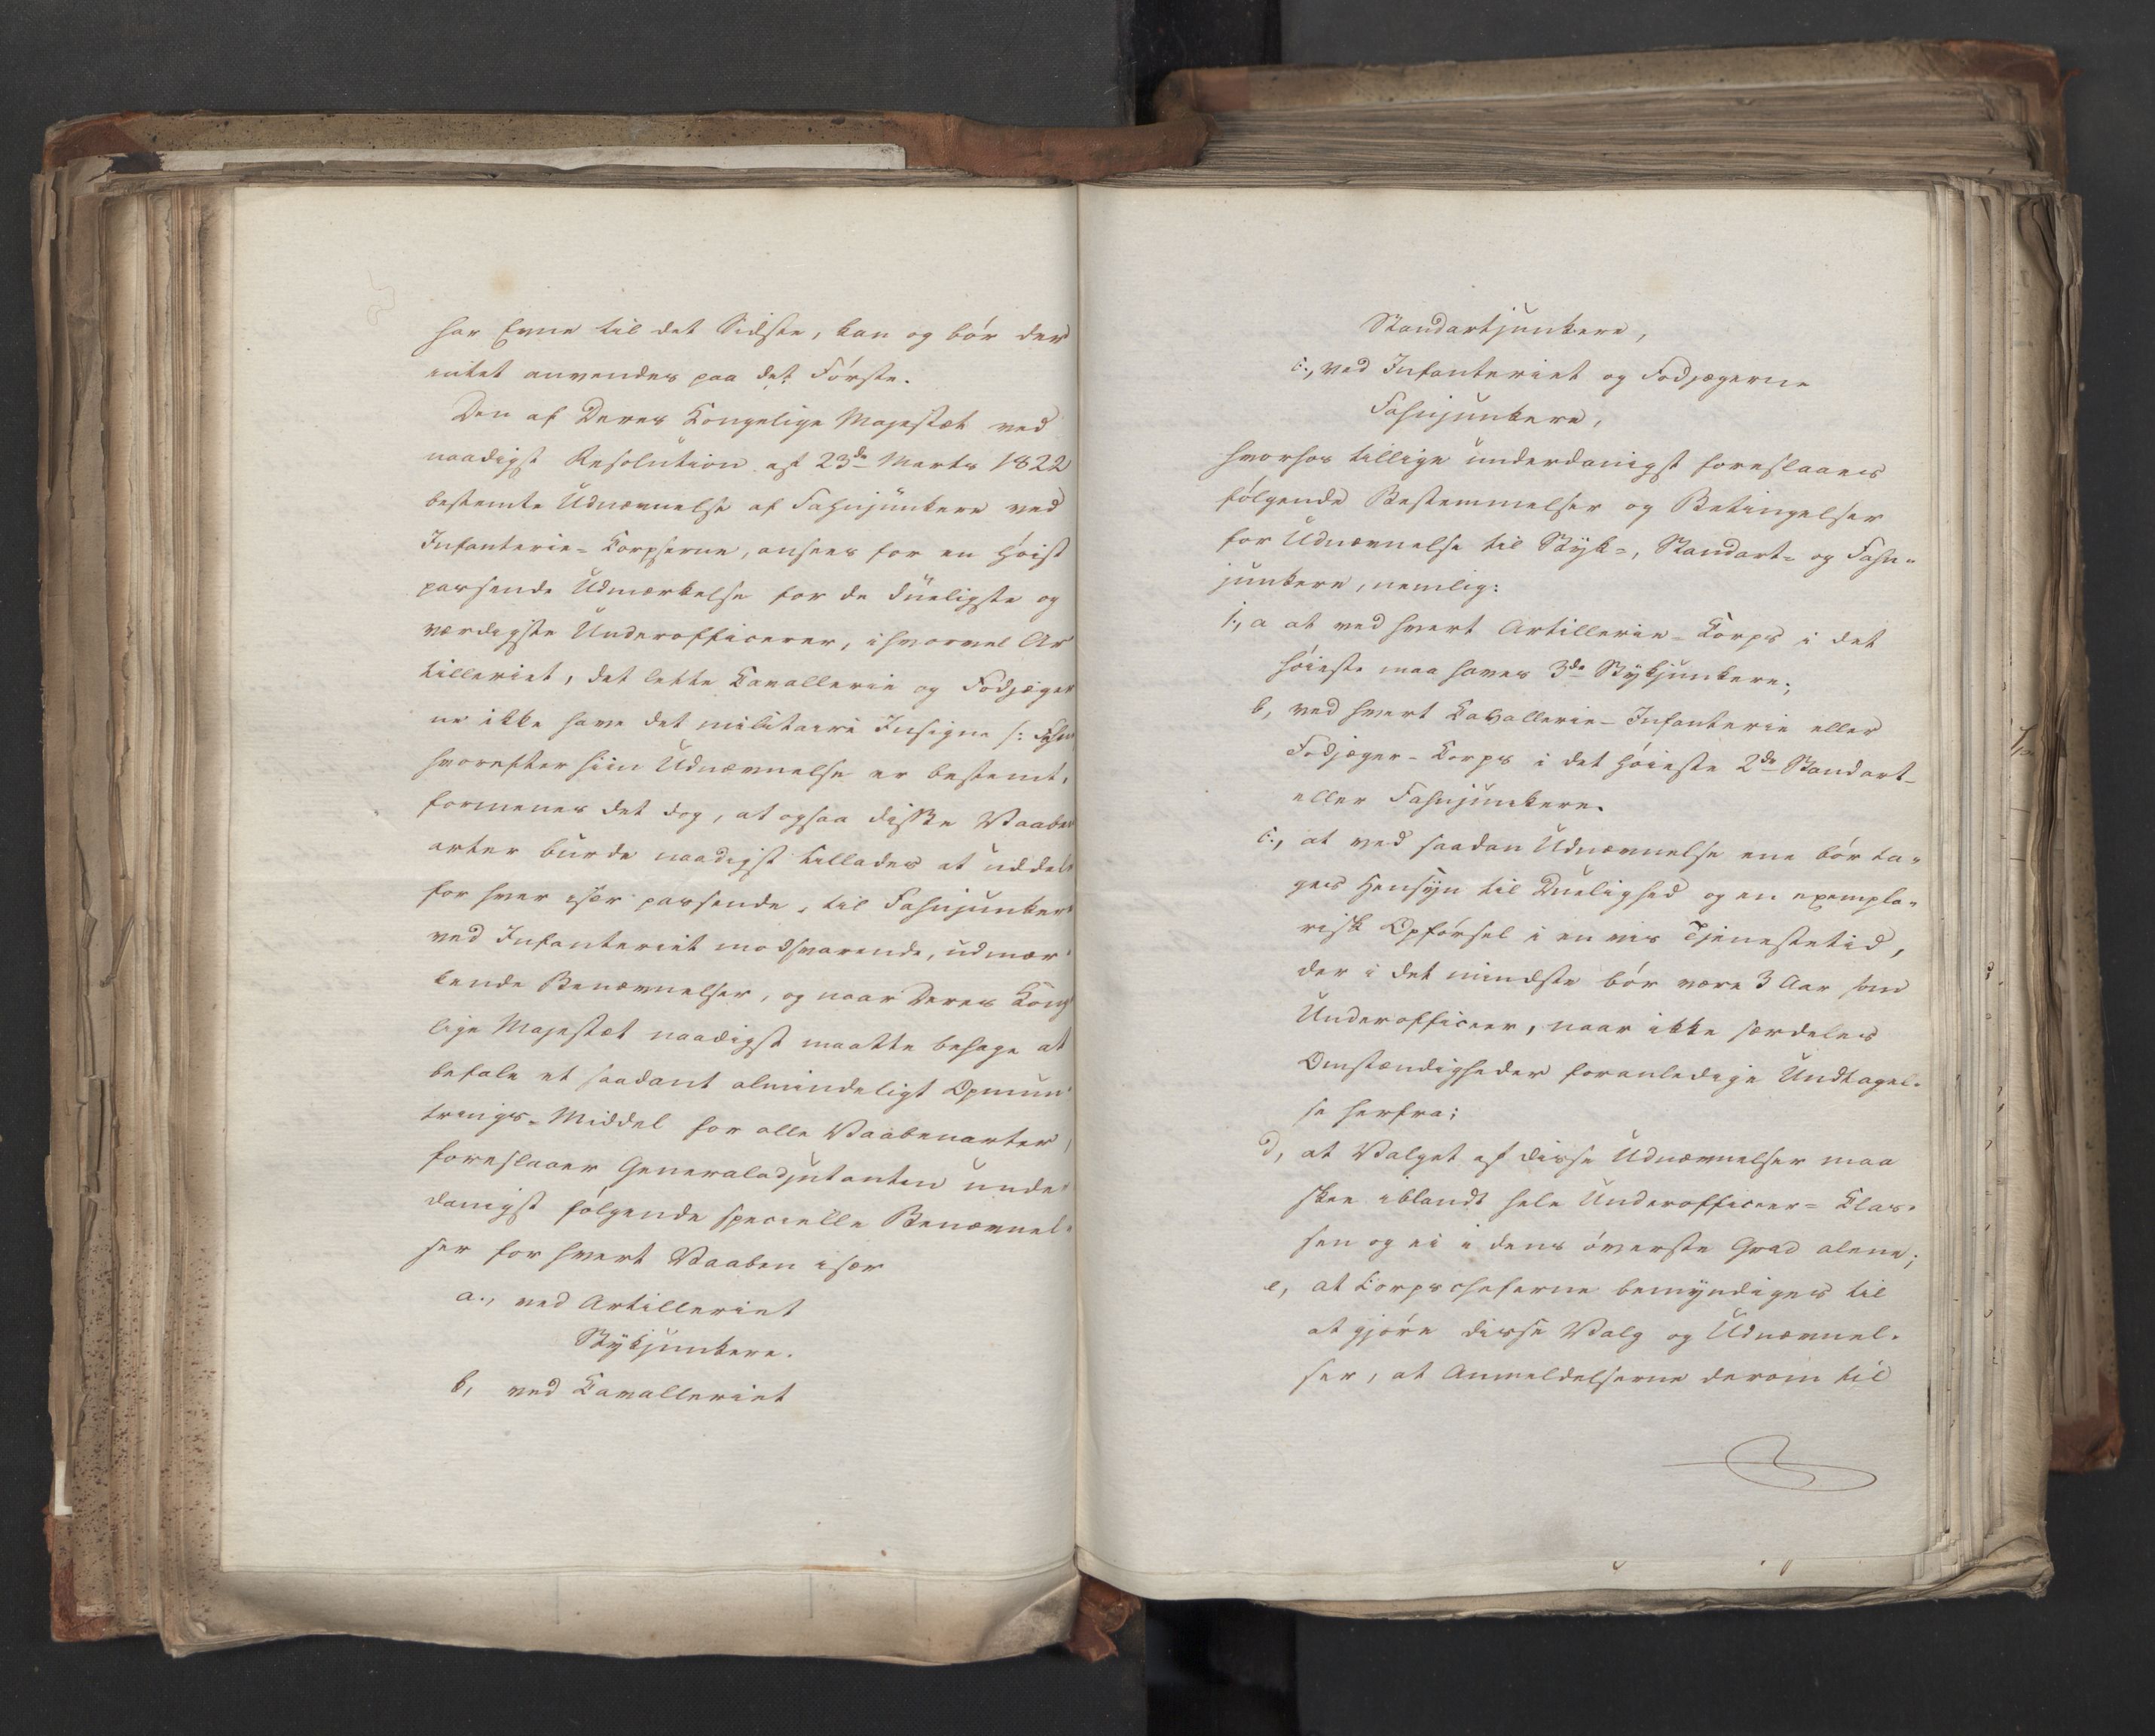 har Evne til det Sidste, kan og bør der
intet anvendes paa det Første.
Den af Deres Kongelige Majestæt ved
naadigst Resolution af 23de Marts 1822
bestemte Udnævnelse af Fahnjunkere ved
Infanterie-Corpserne, ansees for en høist
passende Udmærkelse for de dueligste og
værdigste Underofficerer, ihvorvel Ar
tilleriet, det lette Cavallerie og Fodjæger
ne ikke have det militaire Insigne /: Fahn
hvorefter hiin Udnævnelse er bestemt,
formenes det dog, at ogsaa disse Vaaben
arter burde naadigst tillades at uddele
for hver især passende, til Fahnjunker
ved Infanteriet modsvarende, udmær
kende Benævnelser, og naar Deres Konge
lige Majestæt naadigst maatte behage at
befale et saadant almindeligt Opmun
trings-Middel for alle Vaabenarter,
foreslaaer Generaladjutanten under
danigst følgende specielle Benævnel-
ser for hvert Vaaben især
a., ved Artilleriet
Stykjunkere.
b, ved Cavalleriet
Standartjunkere,
c., ved Infanteriet og Fodjægerne
Fahnjunkere,
hvorhos tillige underdanigst foreslaaes
følgende Bestemmelser og Betingelser
for Udnævnelse til Styk-, Standart- og Fahn-
junkere, nemlig:
1., a at ved hvert Artillerie-Corps i det
høieste maa haves 3de Stykjunkere.,
b, ved hvert Cavallerie- Infanterie eller
Fodjæger-Corps i det høieste 2de Standart-
eller Fahnjunkere.
c., at ved saadan Udnævnelse ene bør ta-
ges Hensyn til Duelighed og en exempla-
risk Opførsel i en vis Tjenestetid,
der i det mindste bør være 3 Aar som
Underofficeer, naar ikke særdeles
Omstændigheder foranledige Undtagel-
se herfra;
d, at Valget af disse Udnævnelser maa
skee iblandt hele Underofficeer-Clas-
sen og ei i dens øverste Grad alene;
e, at Corpscheferne bemyndiges til
at gjøre disse Valg og Udnævnel-
ser, at Anmeldelserne derom til